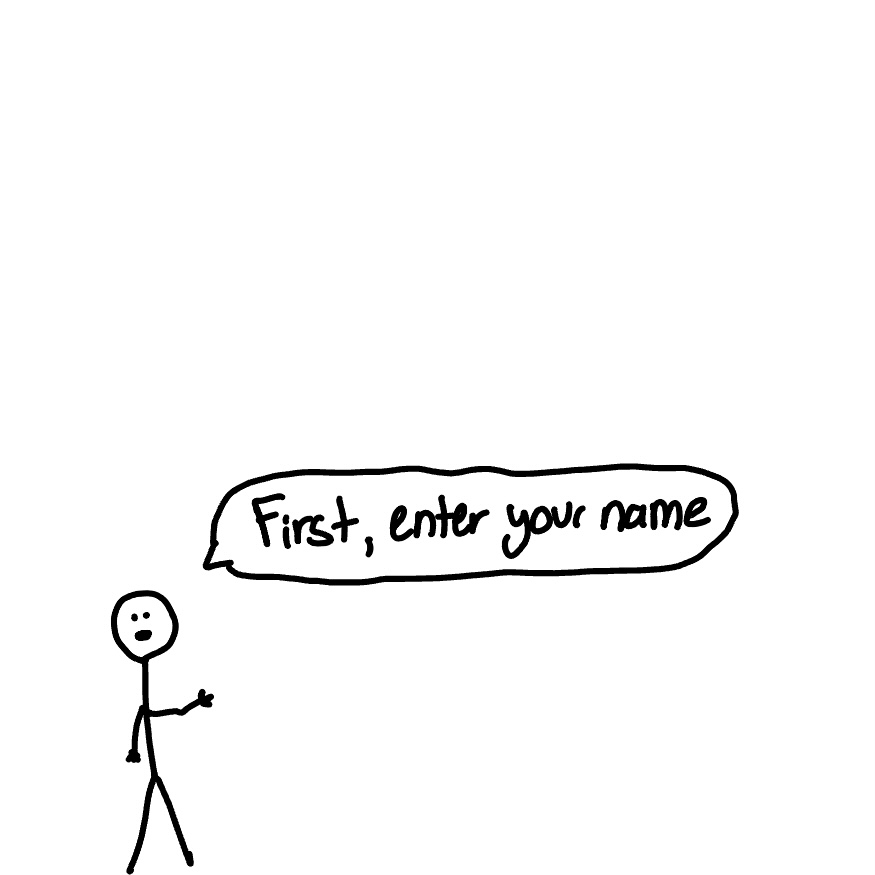 First, enter your name